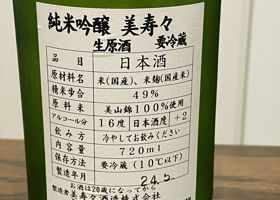 純米吟醸 美寿々
生原酒 要冷蔵
品目 日本酒
原材料名 米(国産)、米麹(国産米)
精米歩合 49%
原料米 美山錦100%使用
アルコール分 16度 日本酒度 +2
飲み方 冷やしてお飲みください
内容量 720ml
保存方法 要冷蔵(10℃以下)
製造年月 24.5
お酒は20歳になってから
製造者 美寿々酒造株式会社